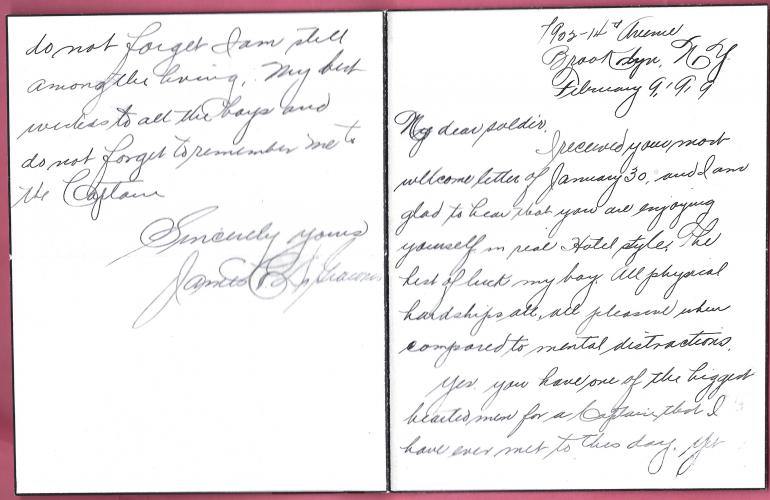 do not forget I am still
among the living. My best
wishes to all the boys and
do not forget to remember me to
the Captain
Sincerely yours
James
7902-14th Avenue
Brooklyn, N.Y.
February 9, 1919
My dear soldier,
I received your most
wellcome letter of January 30, and I am
glad to hear that you are enjoying
yourself in real Hotel style. The
best of luck my boy. All physical
hardships are, all pleasure when
compared to mental distractions.
Yes you have one of the biggest
hearted men for a Captain that I
have ever met to this day. Yet